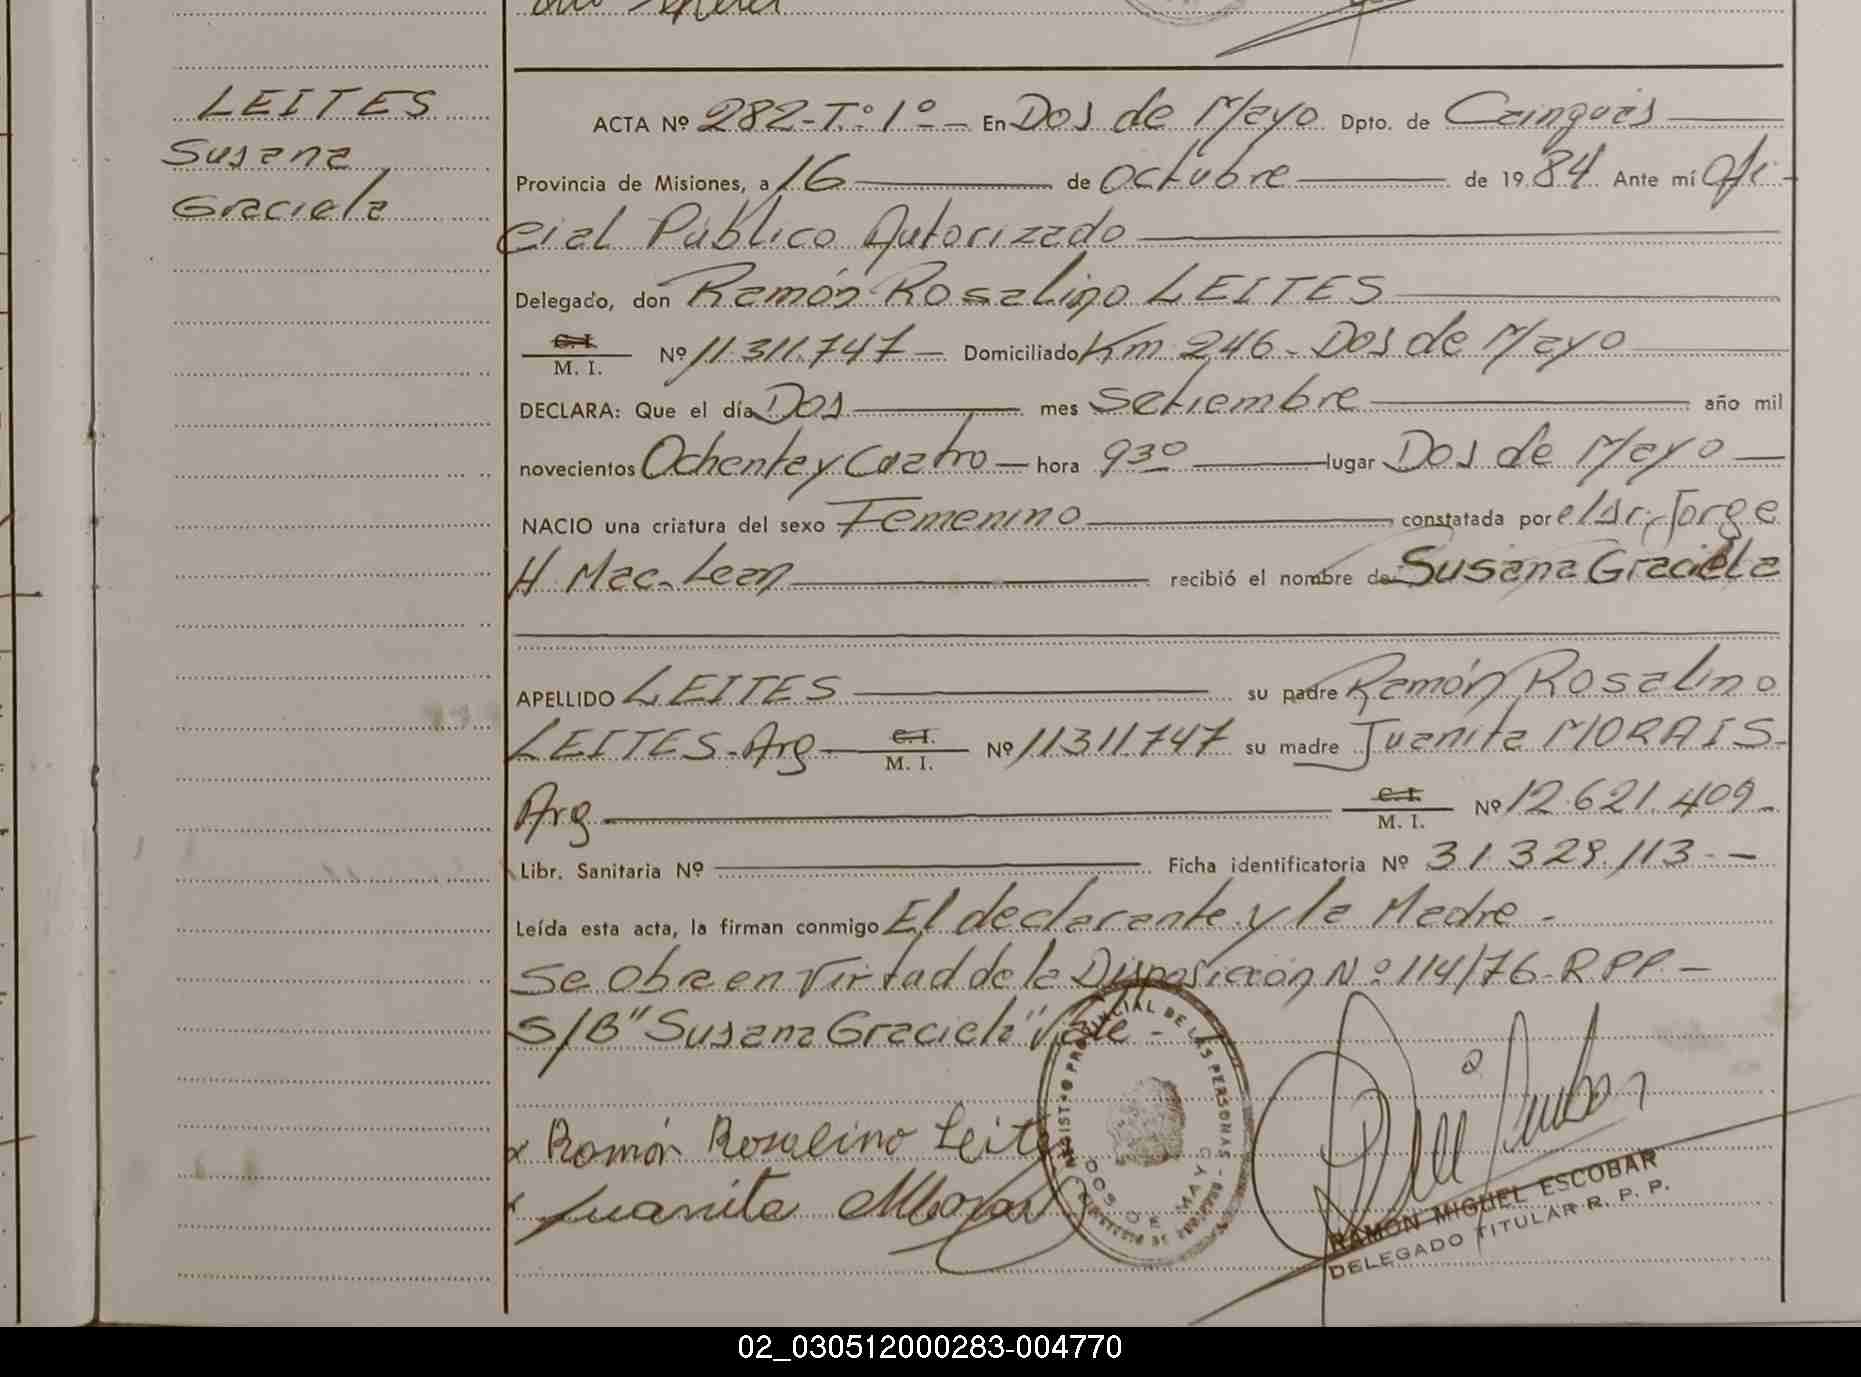 LEITES
Susana
Graciela
ACTA Nº 282-T.º1º - En Dos de Mayo Dpto. de Cainguás
Provincia de Misiones, a 16 de Octubre de 1984 Ante mí Ofi-
cial Público Autorizado
Delegado, don Ramón Rosalino LEITES
C.I.
M. I. Nº 11.311.747 - Domiciliado Km 246 - Dos de Mayo
DECLARA: Que el día Dos mes Setiembre año mil
novecientos Ochenta y Cuatro hora 9 30 lugar Dos de Mayo
NACIO una criatura del sexo Femenino constatada por el Sr. Jorge
H. Mac. Lean recibió el nombre de Susana Graciela
APELLIDO LEITES su padre Ramón Rosalino
LEITES - Arg C.I. M. I. Nº 11311.747 su madre Juanita MORAIS -
Arg C.I. M. I. Nº 12.621.409 -
Libr. Sanitaria Nº Ficha identificatoria Nº 31.329.113 - -
Leída esta acta, la firman conmigo El declarante y la Madre -
Se Obra en Virtud de la Disposición Nº 114/76 - R P P. -
S/B "Susana Graciela" Vale -
x Ramón Rosalino Leites
x Juanita Morais
PROVINCIAL DE LAS PERSONAS
DOS DE MAYO
RAMON MIGUEL ESCOBAR
DELEGADO TITULAR R. P. P.
02_030512000283-004770